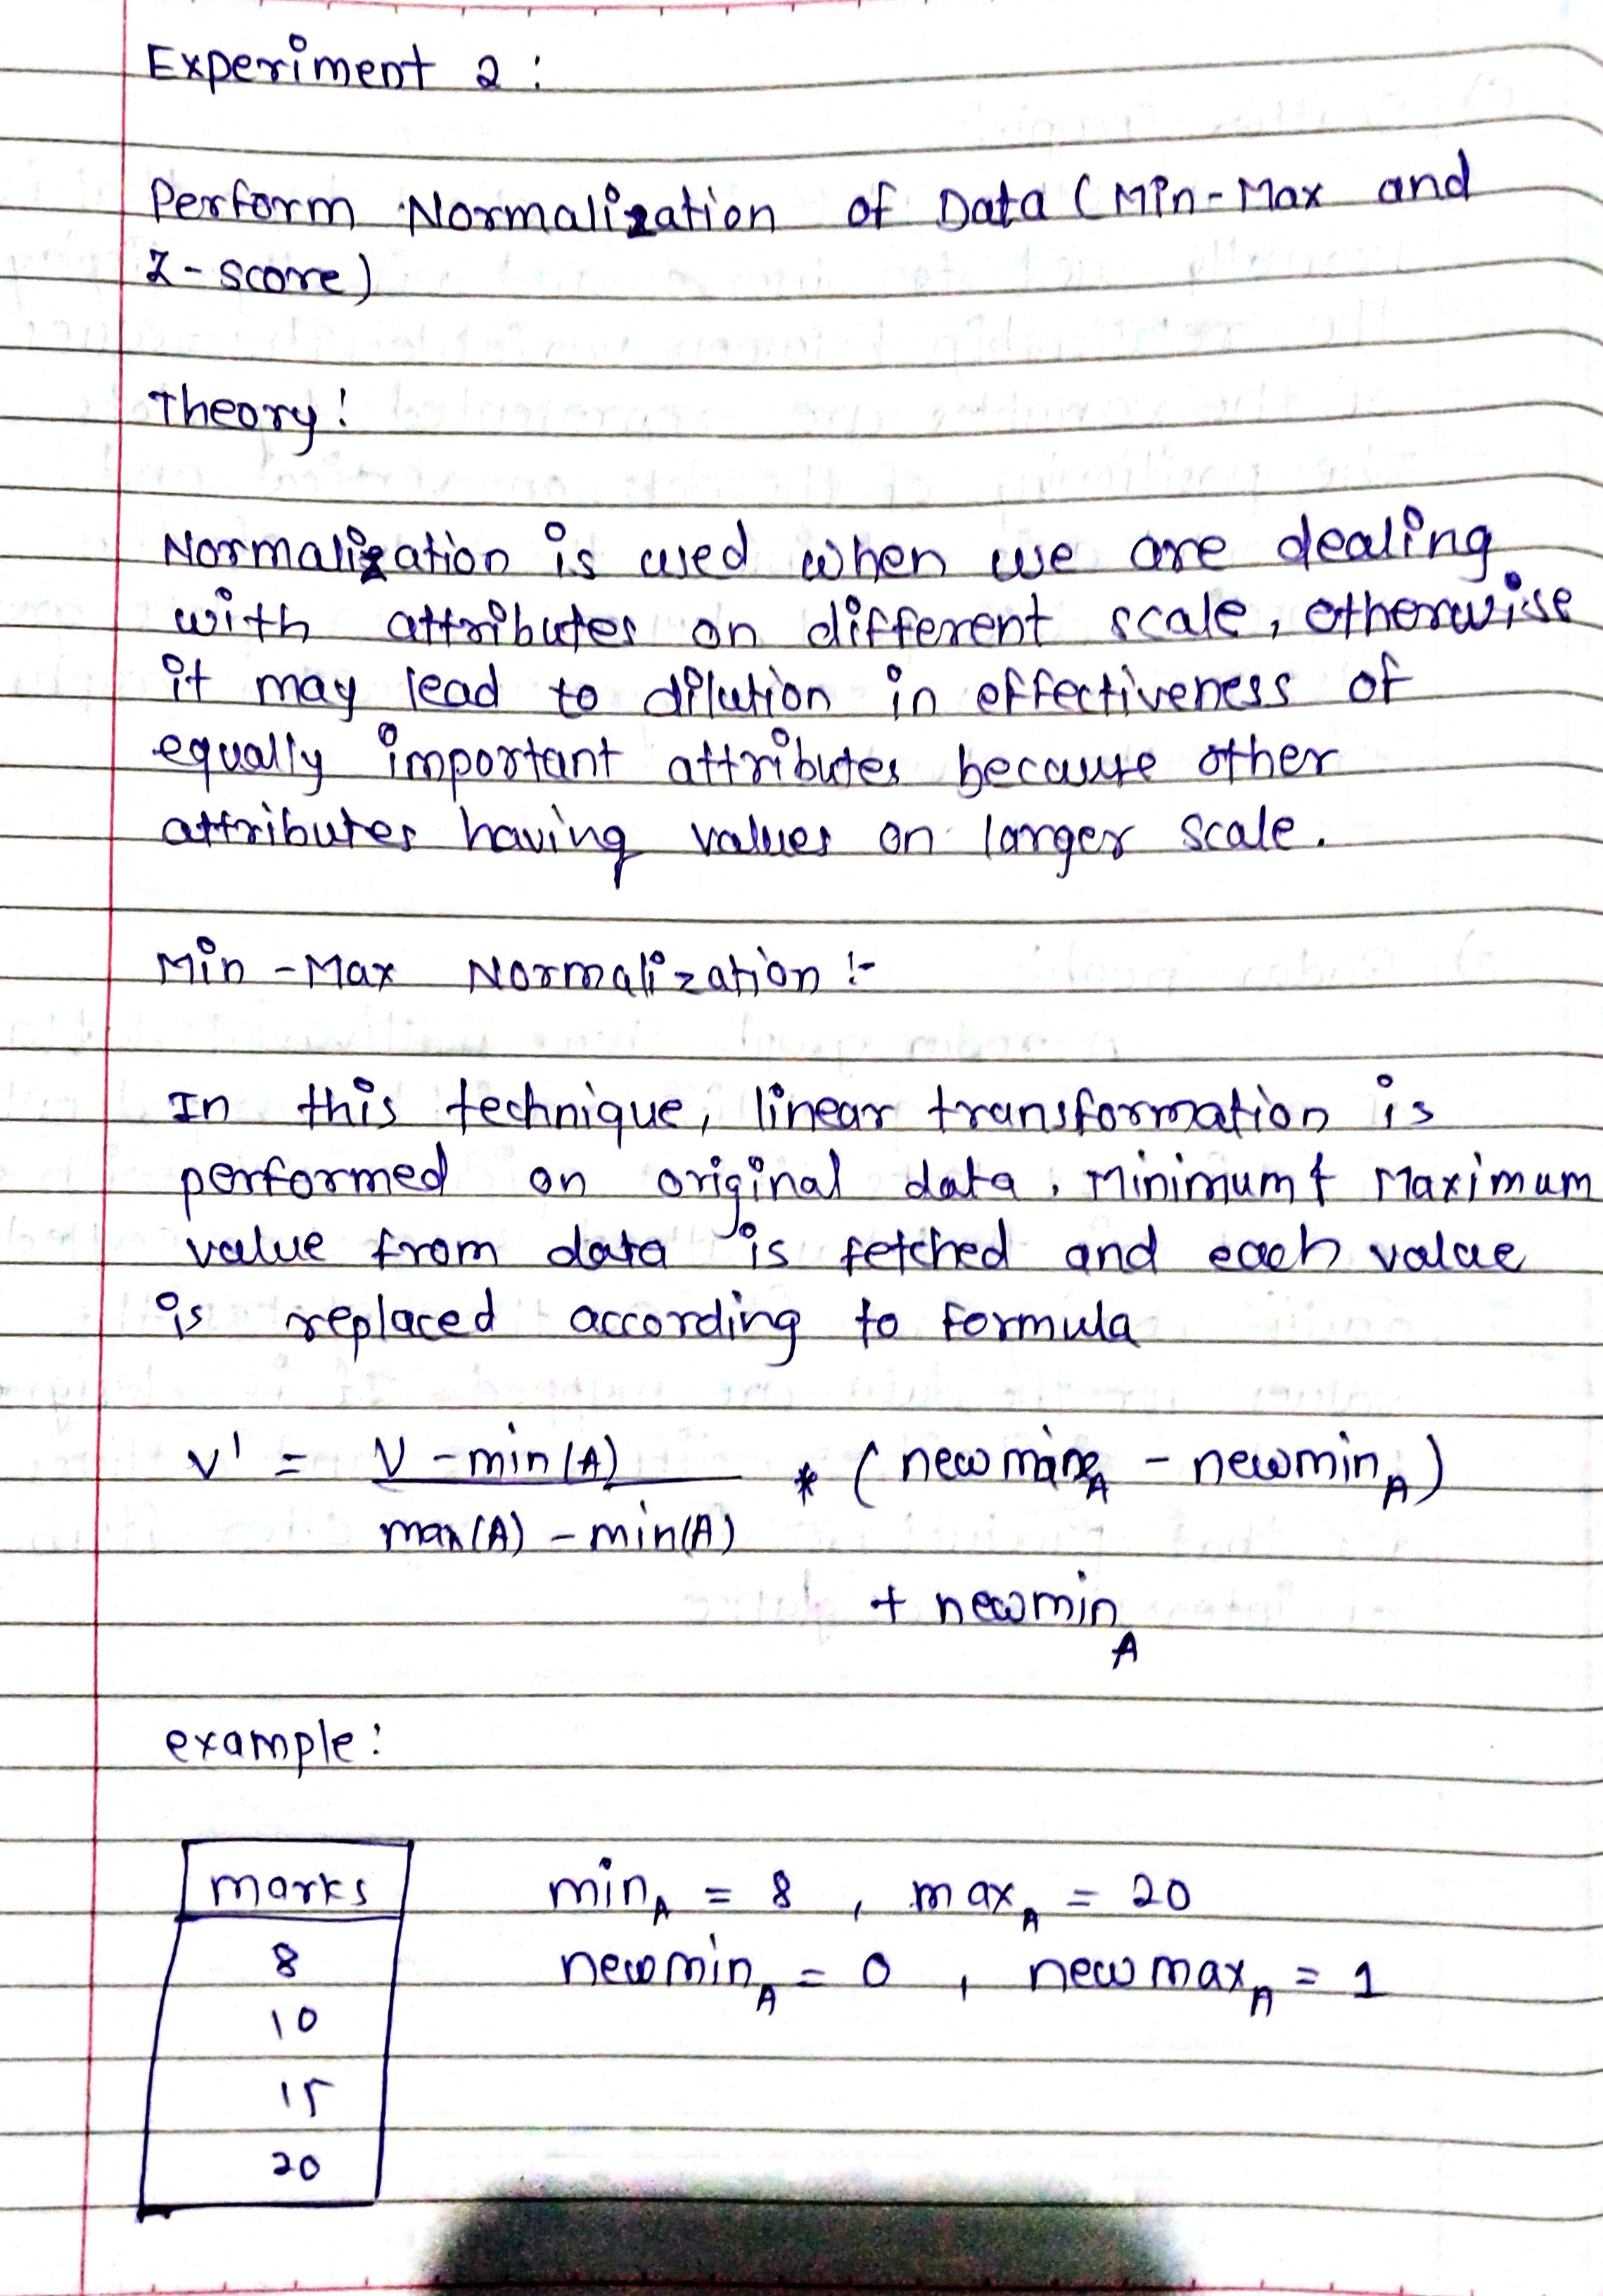 Experiment 2 :
Perform Normalization of Data (Min-Max and
Z-score)
Theory:
Normalization is used when we are dealing
with attributes on different scale, otherwise
it may lead to dilution in effectiveness of
equally important attributes because other
attributes having values on larger scale.
Min-Max Normalization :-
In this technique, linear transformation is
performed on original data. Minimum & Maximum
value from data is fetched and each value
is replaced according to formula
v' = V - min(A) / max(A) - min(A) * (newmax_A - newmin_A)
+ newmin_A
example:
marks min_A = 8 , max_A = 20
8 newmin_A = 0 , newmax_A = 1
10
15
20